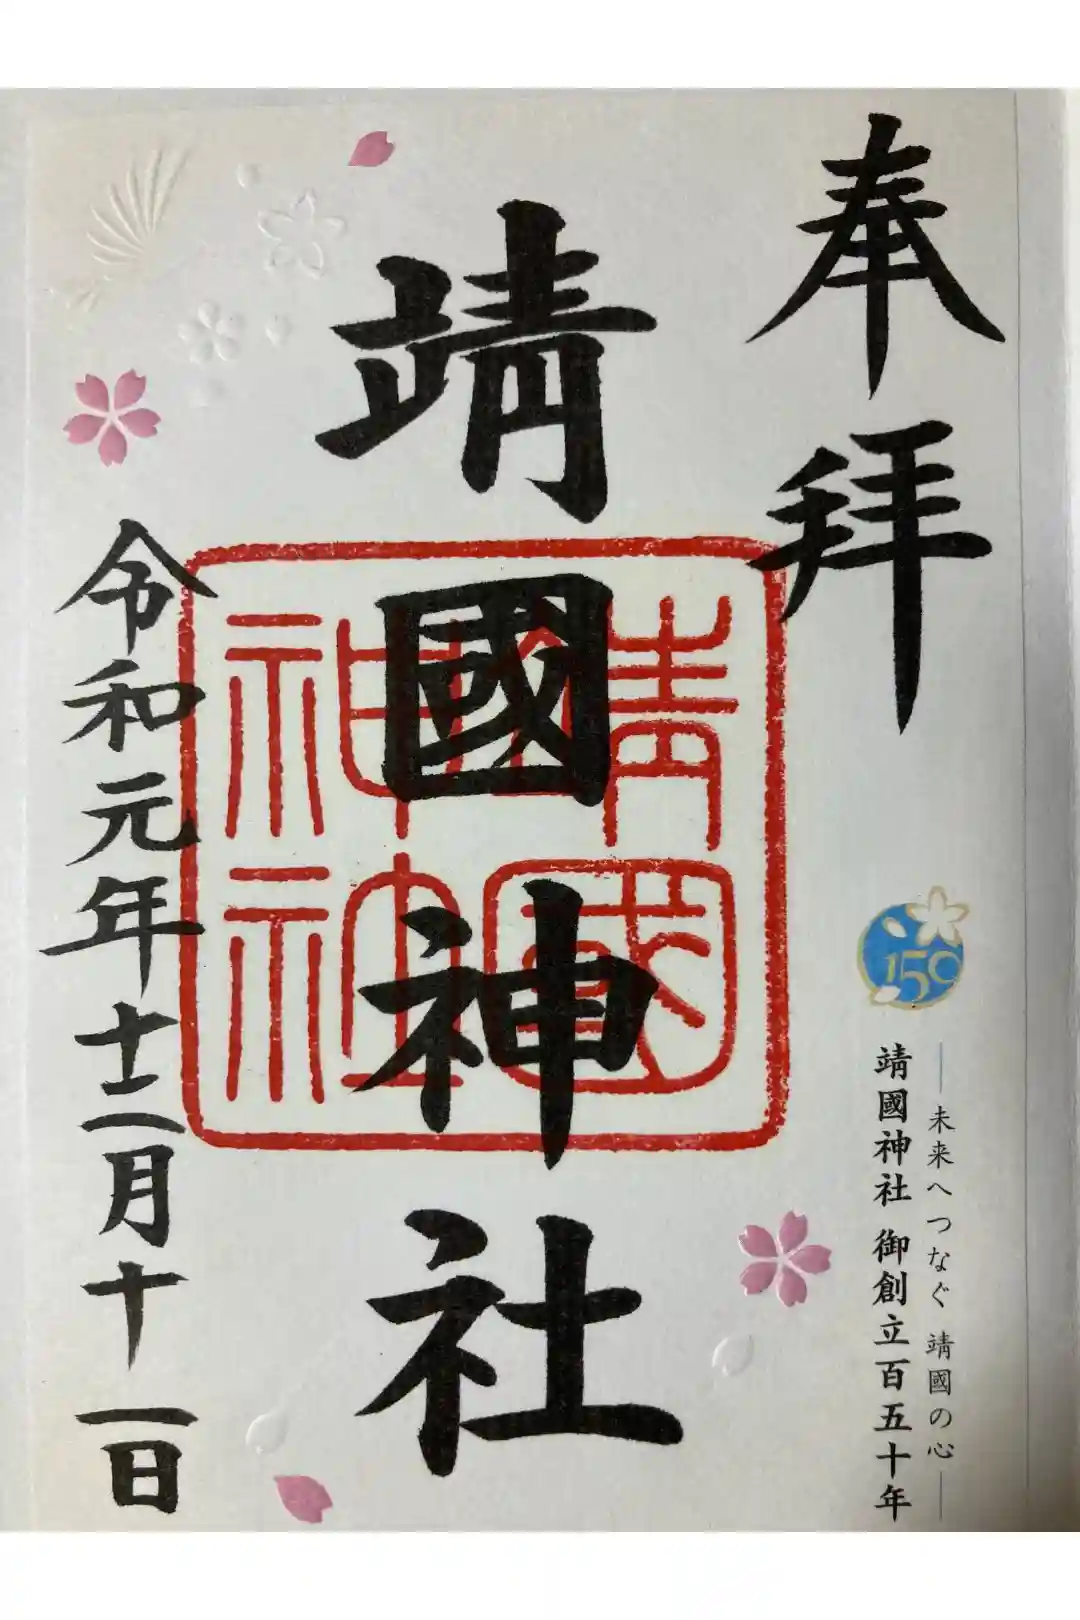 奉拝
150
―未来へつなぐ 靖國の心―
靖國神社 御創立百五十年
靖國神社
靖國
神社
令和元年十二月十一日